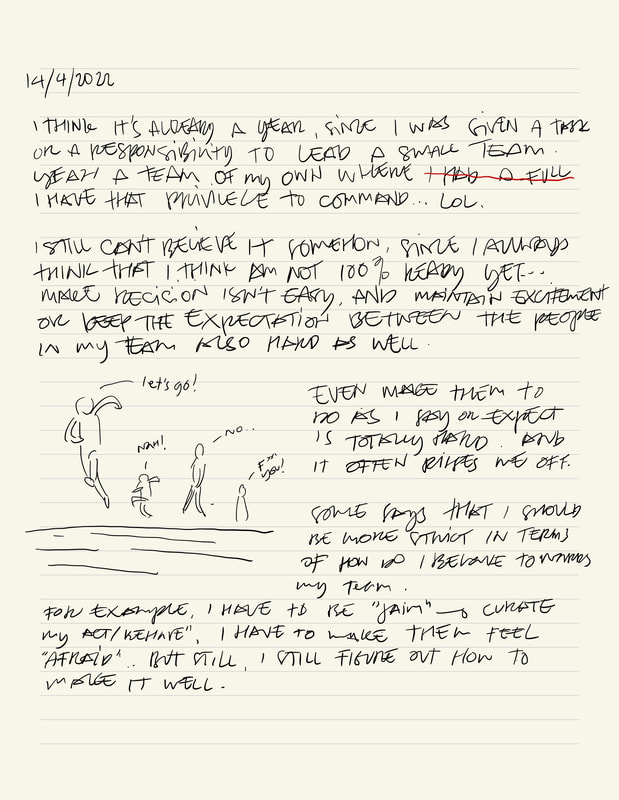 14/4/2022
I THINK IT'S ALREADY A YEAR, SINCE I WAS GIVEN A TASK
OR A RESPONSIBILITY TO LEAD A SMALL TEAM.
YEAH A TEAM OF MY OWN WHERE I HAD A FULL
I HAVE THAT PRIVILEGE TO COMMAND... LOL.
I STILL CAN'T BELIEVE IT SOMEHOW, SINCE I ALWAYS
THINK THAT I THINK AM NOT 100% READY YET...
MAKE DECISION ISN'T EASY, AND MAINTAIN EXCITEMENT
OR KEEP THE EXPECTATION BETWEEN THE PEOPLE
IN MY TEAM ALSO HARD AS WELL.
let's go!
NAH!
NO..
F*** you!
EVEN MAKE THEM TO
DO AS I SAY OR EXPECT
IS TOTALLY HARD. AND
IT OFTEN RIPES ME OFF.
SOME SAYS THAT I SHOULD
BE MORE STRICT IN TERMS
OF HOW DO I BEHAVE TOWARDS
MY TEAM.
FOR EXAMPLE, I HAVE TO BE "JAIM" → CURATE
MY ACT/BEHAVE", I HAVE TO MAKE THEM FEEL
"AFRAID".. BUT STILL, I STILL FIGURE OUT HOW TO
MAKE IT WELL.